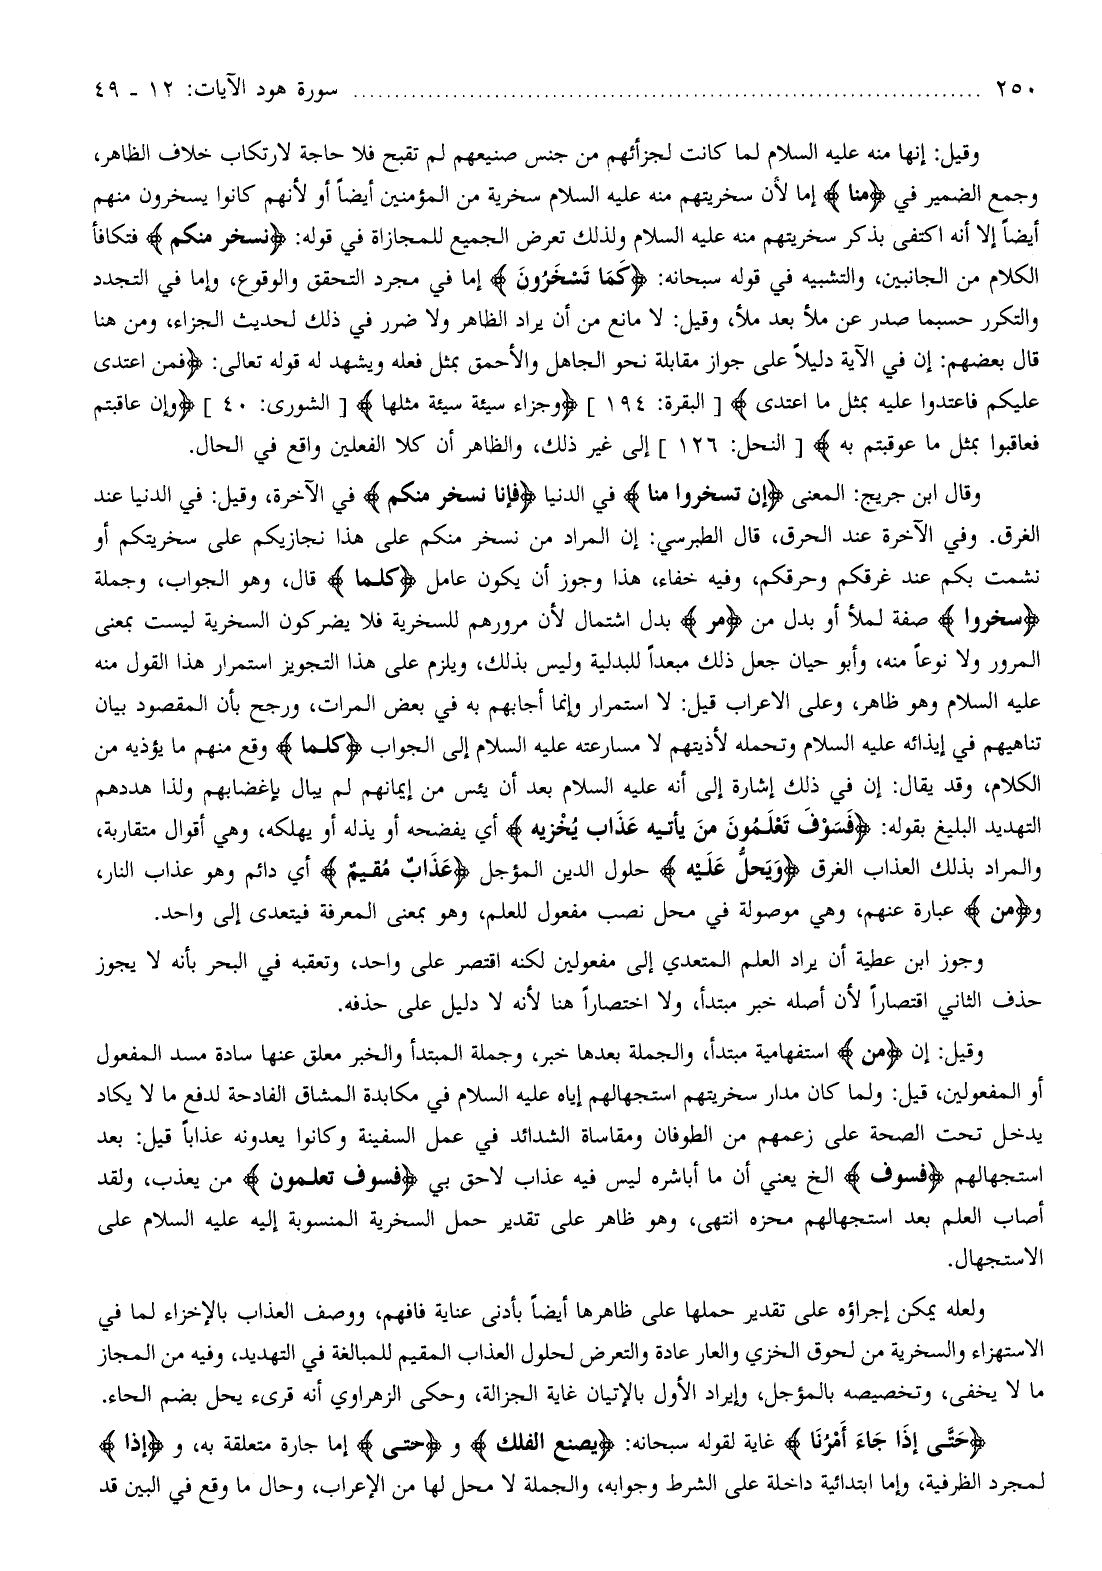 ٢٥٠ ........ سورة هود الآيات: ١٢ - ٤٩
وقيل: إنها منه عليه السلام لما كانت لجزائهم من جنس صنيعهم لم تقبح فلا حاجة لارتكاب خلاف الظاهر،
وجمع الضمير في ﴿منا﴾ إما لأن سخريتهم منه عليه السلام سخرية من المؤمنين أيضاً أو لأنهم كانوا يسخرون منهم
أيضاً إلا أنه اكتفى بذكر سخريتهم منه عليه السلام ولذلك تعرض الجميع للمجازاة في قوله: ﴿نسخر منكم﴾ فتكافأ
الكلام من الجانبين، والتشبيه في قوله سبحانه: ﴿كَمَا تَسْخَرُونَ﴾ إما في مجرد التحقق والوقوع، وإما في التجدد
والتكرر حسبما صدر عن ملأ بعد ملأ، وقيل: لا مانع من أن يراد الظاهر ولا ضرر في ذلك لحديث الجزاء، ومن هنا
قال بعضهم: إن في الآية دليلاً على جواز مقابلة نحو الجاهل والأحمق بمثل فعله ويشهد له قوله تعالى: ﴿فمن اعتدى
عليكم فاعتدوا عليه بمثل ما اعتدى﴾ [ البقرة: ١٩٤ ] ﴿وجزاء سيئة سيئة مثلها﴾ [ الشورى: ٤٠ ] ﴿وإن عاقبتم
فعاقبوا بمثل ما عوقبتم به﴾ [ النحل: ١٢٦ ] إلى غير ذلك، والظاهر أن كلا الفعلين واقع في الحال.
وقال ابن جريج: المعنى ﴿إن تسخروا منا﴾ في الدنيا ﴿فإنا نسخر منكم﴾ في الآخرة، وقيل: في الدنيا عند
الغرق. وفي الآخرة عند الحرق، قال الطبرسي: إن المراد من نسخر منكم على هذا نجازيكم على سخريتكم أو
نشمت بكم عند غرقكم وحرقكم، وفيه خفاء، هذا وجوز أن يكون عامل ﴿كلما﴾ قال، وهو الجواب، وجملة
﴿سخروا﴾ صفة لملأ أو بدل من ﴿مر﴾ بدل اشتمال لأن مرورهم للسخرية فلا يضر كون السخرية ليست بمعنى
المرور ولا نوعاً منه، وأبو حيان جعل ذلك مبعداً للبدلية وليس بذلك، ويلزم على هذا التجويز استمرار هذا القول منه
عليه السلام وهو ظاهر، وعلى الاعراب قيل: لا استمرار وإنما أجابهم به في بعض المرات، ورجح بأن المقصود بيان
تناهيهم في إيذائه عليه السلام وتحمله لأذيتهم لا مسارعته عليه السلام إلى الجواب ﴿كلما﴾ وقع منهم ما يؤذيه من
الكلام، وقد يقال: إن في ذلك إشارة إلى أنه عليه السلام بعد أن يئس من إيمانهم لم يبال بإغضابهم ولذا هددهم
التهديد البليغ بقوله: ﴿فَسَوْفَ تَعْلَمُونَ مَن يأتيه عَذَاب يُخْزيه﴾ أي يفضحه أو يذله أو يهلكه، وهي أقوال متقاربة،
والمراد بذلك العذاب الغرق ﴿وَيَحلُّ عَلَيْه﴾ حلول الدين المؤجل ﴿عَذَابٌ مُقيمٌ﴾ أي دائم وهو عذاب النار،
و﴿من﴾ عبارة عنهم، وهي موصولة في محل نصب مفعول للعلم، وهو بمعنى المعرفة فيتعدى إلى واحد.
وجوز ابن عطية أن يراد العلم المتعدي إلى مفعولين لكنه اقتصر على واحد، وتعقبه في البحر بأنه لا يجوز
حذف الثاني اقتصاراً لأن أصله خبر مبتدأ، ولا اختصاراً هنا لأنه لا دليل على حذفه.
وقيل: إن ﴿من﴾ استفهامية مبتدأ، والجملة بعدها خبر، وجملة المبتدأ والخبر معلق عنها سادة مسد المفعول
أو المفعولين، قيل: ولما كان مدار سخريتهم استجهالهم إياه عليه السلام في مكابدة المشاق الفادحة لدفع ما لا يكاد
يدخل تحت الصحة على زعمهم من الطوفان ومقاساة الشدائد في عمل السفينة وكانوا يعدونه عذاباً قيل: بعد
استجهالهم ﴿فسوف﴾ الخ يعني أن ما أباشره ليس فيه عذاب لاحق بي ﴿فسوف تعلمون﴾ من يعذب، ولقد
أصاب العلم بعد استجهالهم محزه انتهى، وهو ظاهر على تقدير حمل السخرية المنسوبة إليه عليه السلام على
الاستجهال.
ولعله يمكن إجراؤه على تقدير حملها على ظاهرها أيضاً بأدنى عناية فافهم، ووصف العذاب بالإخزاء لما في
الاستهزاء والسخرية من لحوق الخزي والعار عادة والتعرض لحلول العذاب المقيم للمبالغة في التهديد، وفيه من المجاز
ما لا يخفى، وتخصيصه بالمؤجل، وإيراد الأول بالإتيان غاية الجزالة، وحكى الزهراوي أنه قرىء يحل بضم الحاء.
﴿حَتَّى إذَا جَاءَ أَمْرُنَا﴾ غاية لقوله سبحانه: ﴿يصنع الفلك﴾ و ﴿حتى﴾ إما جارة متعلقة به، و ﴿إذا﴾
لمجرد الظرفية، وإما ابتدائية داخلة على الشرط وجوابه، والجملة لا محل لها من الإعراب، وحال ما وقع في البين قد